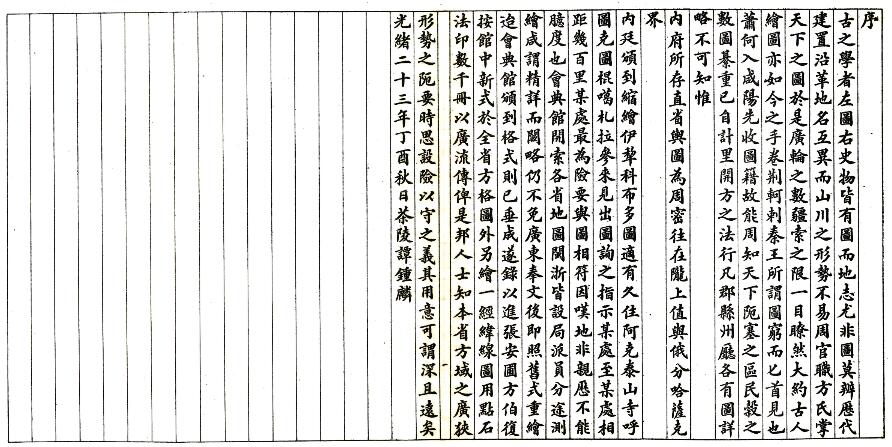 序
古之學者左圖右史物皆有圖而地志尤非圖莫辨歷代
建置沿革地名互異而山川之形勢不易周官職方氏掌
天下之圖於是廣輪之數疆索之限一目瞭然大約古人
繪圖亦如今之手卷荆軻刺秦王所謂圖窮而匕首見也
蕭何入咸陽先收圖籍故能周知天下阨塞之區民穀之
數圖綦重已自計里開方之法行凡郡縣州廳各有圖詳
略不可知惟
內府所存直省輿圖為周密往在隴上值與俄分哈薩克
界
內廷頒到縮繪伊犂科布多圖適有久住阿克泰山寺呼
圖克圖棍噶札拉參來見出圖詢之指示某處至某處相
距幾百里某處最為險要與圖相符因嘆地非親歷不能
臆度也會典館開索各省地圖閩浙皆設局派員分途測
繪咸謂精詳而闊略仍不免廣東奉文後即照舊式重繪
迨會典館頒到格式則已垂成遂錄以進張安圃方伯復
按館中新式於全省方格圖外另繪一經緯線圖用點石
法印數千冊以廣流傳俾是邦人士知本省方域之廣狹
形勢之阨要時思設險以守之義其用意可謂深且遠矣
光緒二十三年丁酉秋日茶陵譚鍾麟